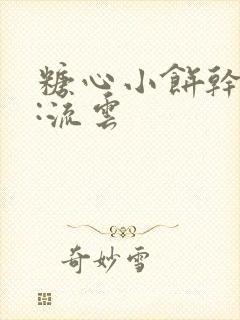 糖心小餅幹
:流雲
奇妙雪